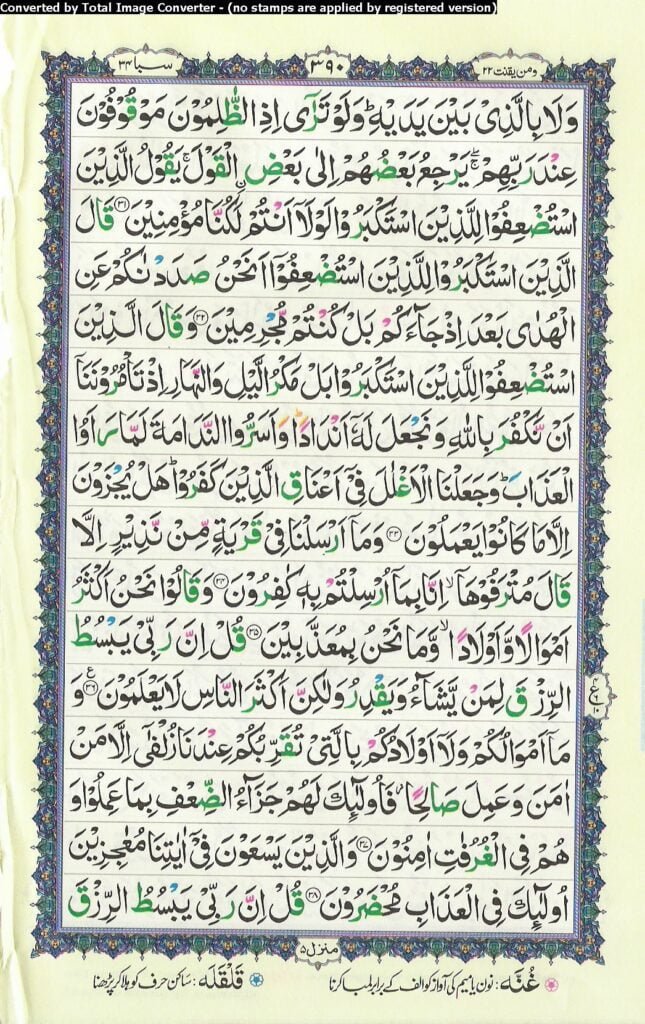 Converted by Total Image Converter - (no stamps are applied by registered version)
ومن یقنت ۲۲ ۳۹۰ سبا ۳۴
وَلَا بِالَّذِیْ بَیْنَ یَدَیْهِ ؕ وَلَوْ تَرٰۤی اِذِ الظّٰلِمُوْنَ مَوْقُوْفُوْنَ
عِنْدَ رَبِّهِمْ ۖۚ یَرْجِعُ بَعْضُهُمْ اِلٰی بَعْضِ ࣙالْقَوْلَ ۚ یَقُوْلُ الَّذِیْنَ
اسْتُضْعِفُوْا لِلَّذِیْنَ اسْتَكْبَرُوْا لَوْلَاۤ اَنْتُمْ لَكُنَّا مُؤْمِنِیْنَ ۝۳۱ قَالَ
الَّذِیْنَ اسْتَكْبَرُوْا لِلَّذِیْنَ اسْتُضْعِفُوْۤا اَنَحْنُ صَدَدْنٰكُمْ عَنِ
الْهُدٰی بَعْدَ اِذْ جَآءَكُمْ بَلْ كُنْتُمْ مُّجْرِمِیْنَ ۝۳۲ وَقَالَ الَّذِیْنَ
اسْتُضْعِفُوْا لِلَّذِیْنَ اسْتَكْبَرُوْا بَلْ مَكْرُ الَّیْلِ وَالنَّهَارِ اِذْ تَاْمُرُوْنَنَاۤ
اَنْ نَّكْفُرَ بِاللّٰهِ وَنَجْعَلَ لَهٗۤ اَنْدَادًا ؕ وَاَسَرُّوا النَّدَامَةَ لَمَّا رَاَوُا
الْعَذَابَ ؕ وَجَعَلْنَا الْاَغْلٰلَ فِیْۤ اَعْنَاقِ الَّذِیْنَ كَفَرُوْا ؕ هَلْ یُجْزَوْنَ
اِلَّا مَا كَانُوْا یَعْمَلُوْنَ ۝۳۳ وَمَاۤ اَرْسَلْنَا فِیْ قَرْیَةٍ مِّنْ نَّذِیْرٍ اِلَّا
قَالَ مُتْرَفُوْهَاۤ ۙ اِنَّا بِمَاۤ اُرْسِلْتُمْ بِهٖ كٰفِرُوْنَ ۝۳۴ وَقَالُوْا نَحْنُ اَكْثَرُ
اَمْوَالًا وَّاَوْلَادًا ۙ وَّمَا نَحْنُ بِمُعَذَّبِیْنَ ۝۳۵ قُلْ اِنَّ رَبِّیْ یَبْسُطُ
الرِّزْقَ لِمَنْ یَّشَآءُ وَیَقْدِرُ وَلٰكِنَّ اَكْثَرَ النَّاسِ لَا یَعْلَمُوْنَ ۝۳۶ ع وَ
مَاۤ اَمْوَالُكُمْ وَلَاۤ اَوْلَادُكُمْ بِالَّتِیْ تُقَرِّبُكُمْ عِنْدَنَا زُلْفٰۤی اِلَّا مَنْ
اٰمَنَ وَعَمِلَ صَالِحًا ؗ فَاُولٰٓىِٕكَ لَهُمْ جَزَآءُ الضِّعْفِ بِمَا عَمِلُوْا وَ
هُمْ فِی الْغُرُفٰتِ اٰمِنُوْنَ ۝۳۷ وَالَّذِیْنَ یَسْعَوْنَ فِیْۤ اٰیٰتِنَا مُعٰجِزِیْنَ
اُولٰٓىِٕكَ فِی الْعَذَابِ مُحْضَرُوْنَ ۝۳۸ قُلْ اِنَّ رَبِّیْ یَبْسُطُ الرِّزْقَ
منزل ۵
غُنَّہ: نون یا میم کی آواز کو الف کے برابر لمبا کرنا قَلْقَلَہ: ساکن حرف کو ہلا کر پڑھنا